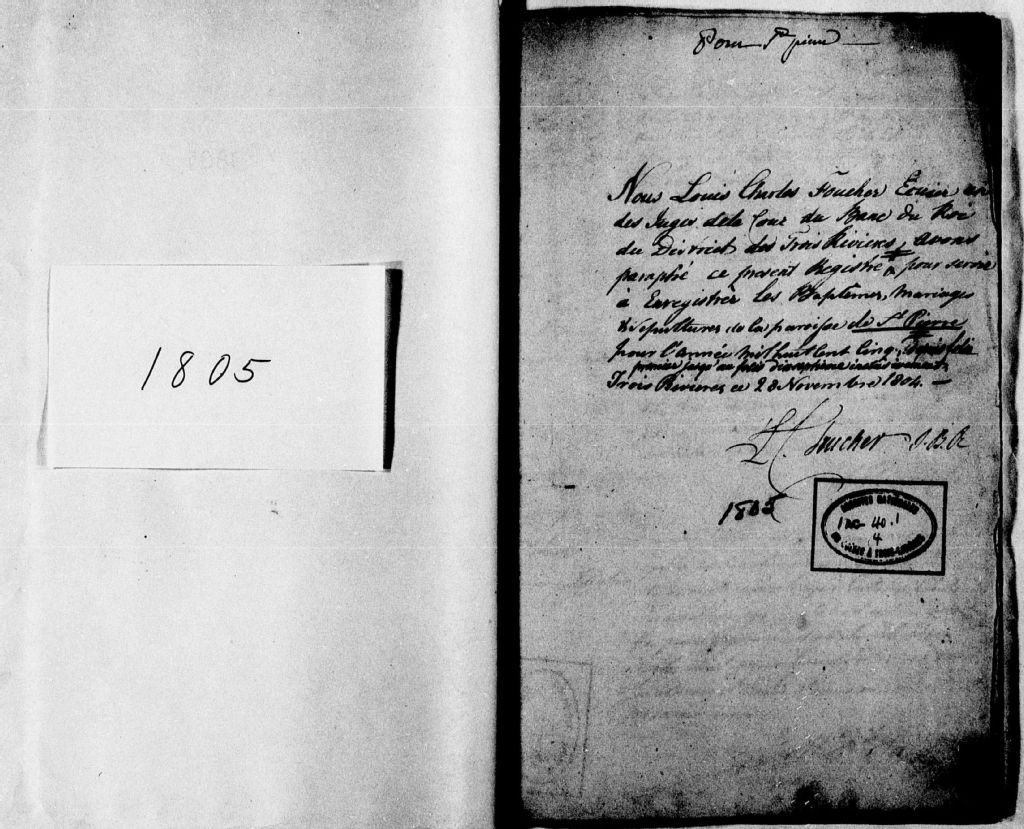 1805
Pour St pierre
Nous Louis Charles Foucher Ecuier un
des Juges de la Cour du Banc du Roi
du District des Trois Rivieres, avons
paraphé ce present Registre pour servir
à Enregistrer les Baptêmes, Mariages
& Sepultures de la paroisse de St Pierre
pour l'année mil huit Cent Cinq, depuis folio
premier jusqu'au folio inclusivement,
Trois Rivieres ce 28 Novembre 1804. —
LC Foucher J.B.R
1805
ARCHIVES NATIONALES
40.1
4
DU QUÉBEC À TROIS-RIVIÈRES